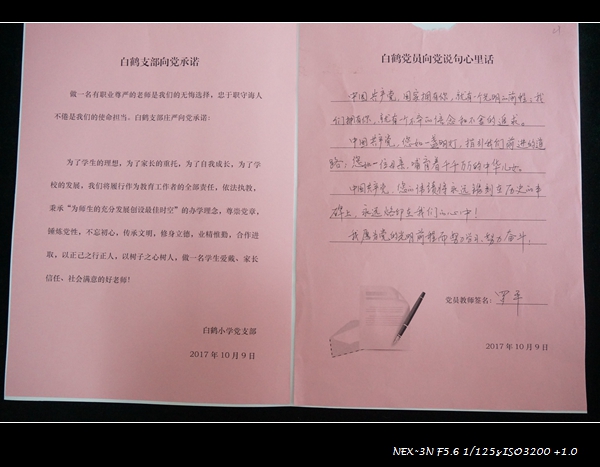 白鹤支部向党承诺
做一名有职业尊严的老师是我们的无悔选择，忠于职守诲人
不倦是我们的使命担当。白鹤支部庄严向党承诺：
为了学生的理想，为了家长的重托，为了自我成长，为了学
校的发展，我们将履行作为教育工作者的全部责任，依法执教，
秉承“为师生的充分发展创设最佳时空”的办学理念，尊崇党章，
锤炼党性，不忘初心，传承文明，修身立德，业精惟勤，合作进
取，以正己之行正人，以树子之心树人，做一名学生爱戴、家长
信任、社会满意的好老师！
白鹤小学党支部
2017 年 10 月 9 日
白鹤党员向党说句心里话
中国共产党，国家拥有你，就有一个光明的前程，我
们拥有你，就有个不变的信念和不舍的追求。
中国共产党，您如一盏明灯，指引我们前进的道
路；您如一位母亲，哺育着千千万万的中华儿女。
中国共产党，您的体绩将永远镌刻在历史的丰
碑上，永远烙印在我们的心中！
我愿为党的光明前程而努力学习，努力奋斗。
党员教师签名：
2017 年 10 月 9 日
NEX-3N F5.6 1/125s ISO3200 +1.0